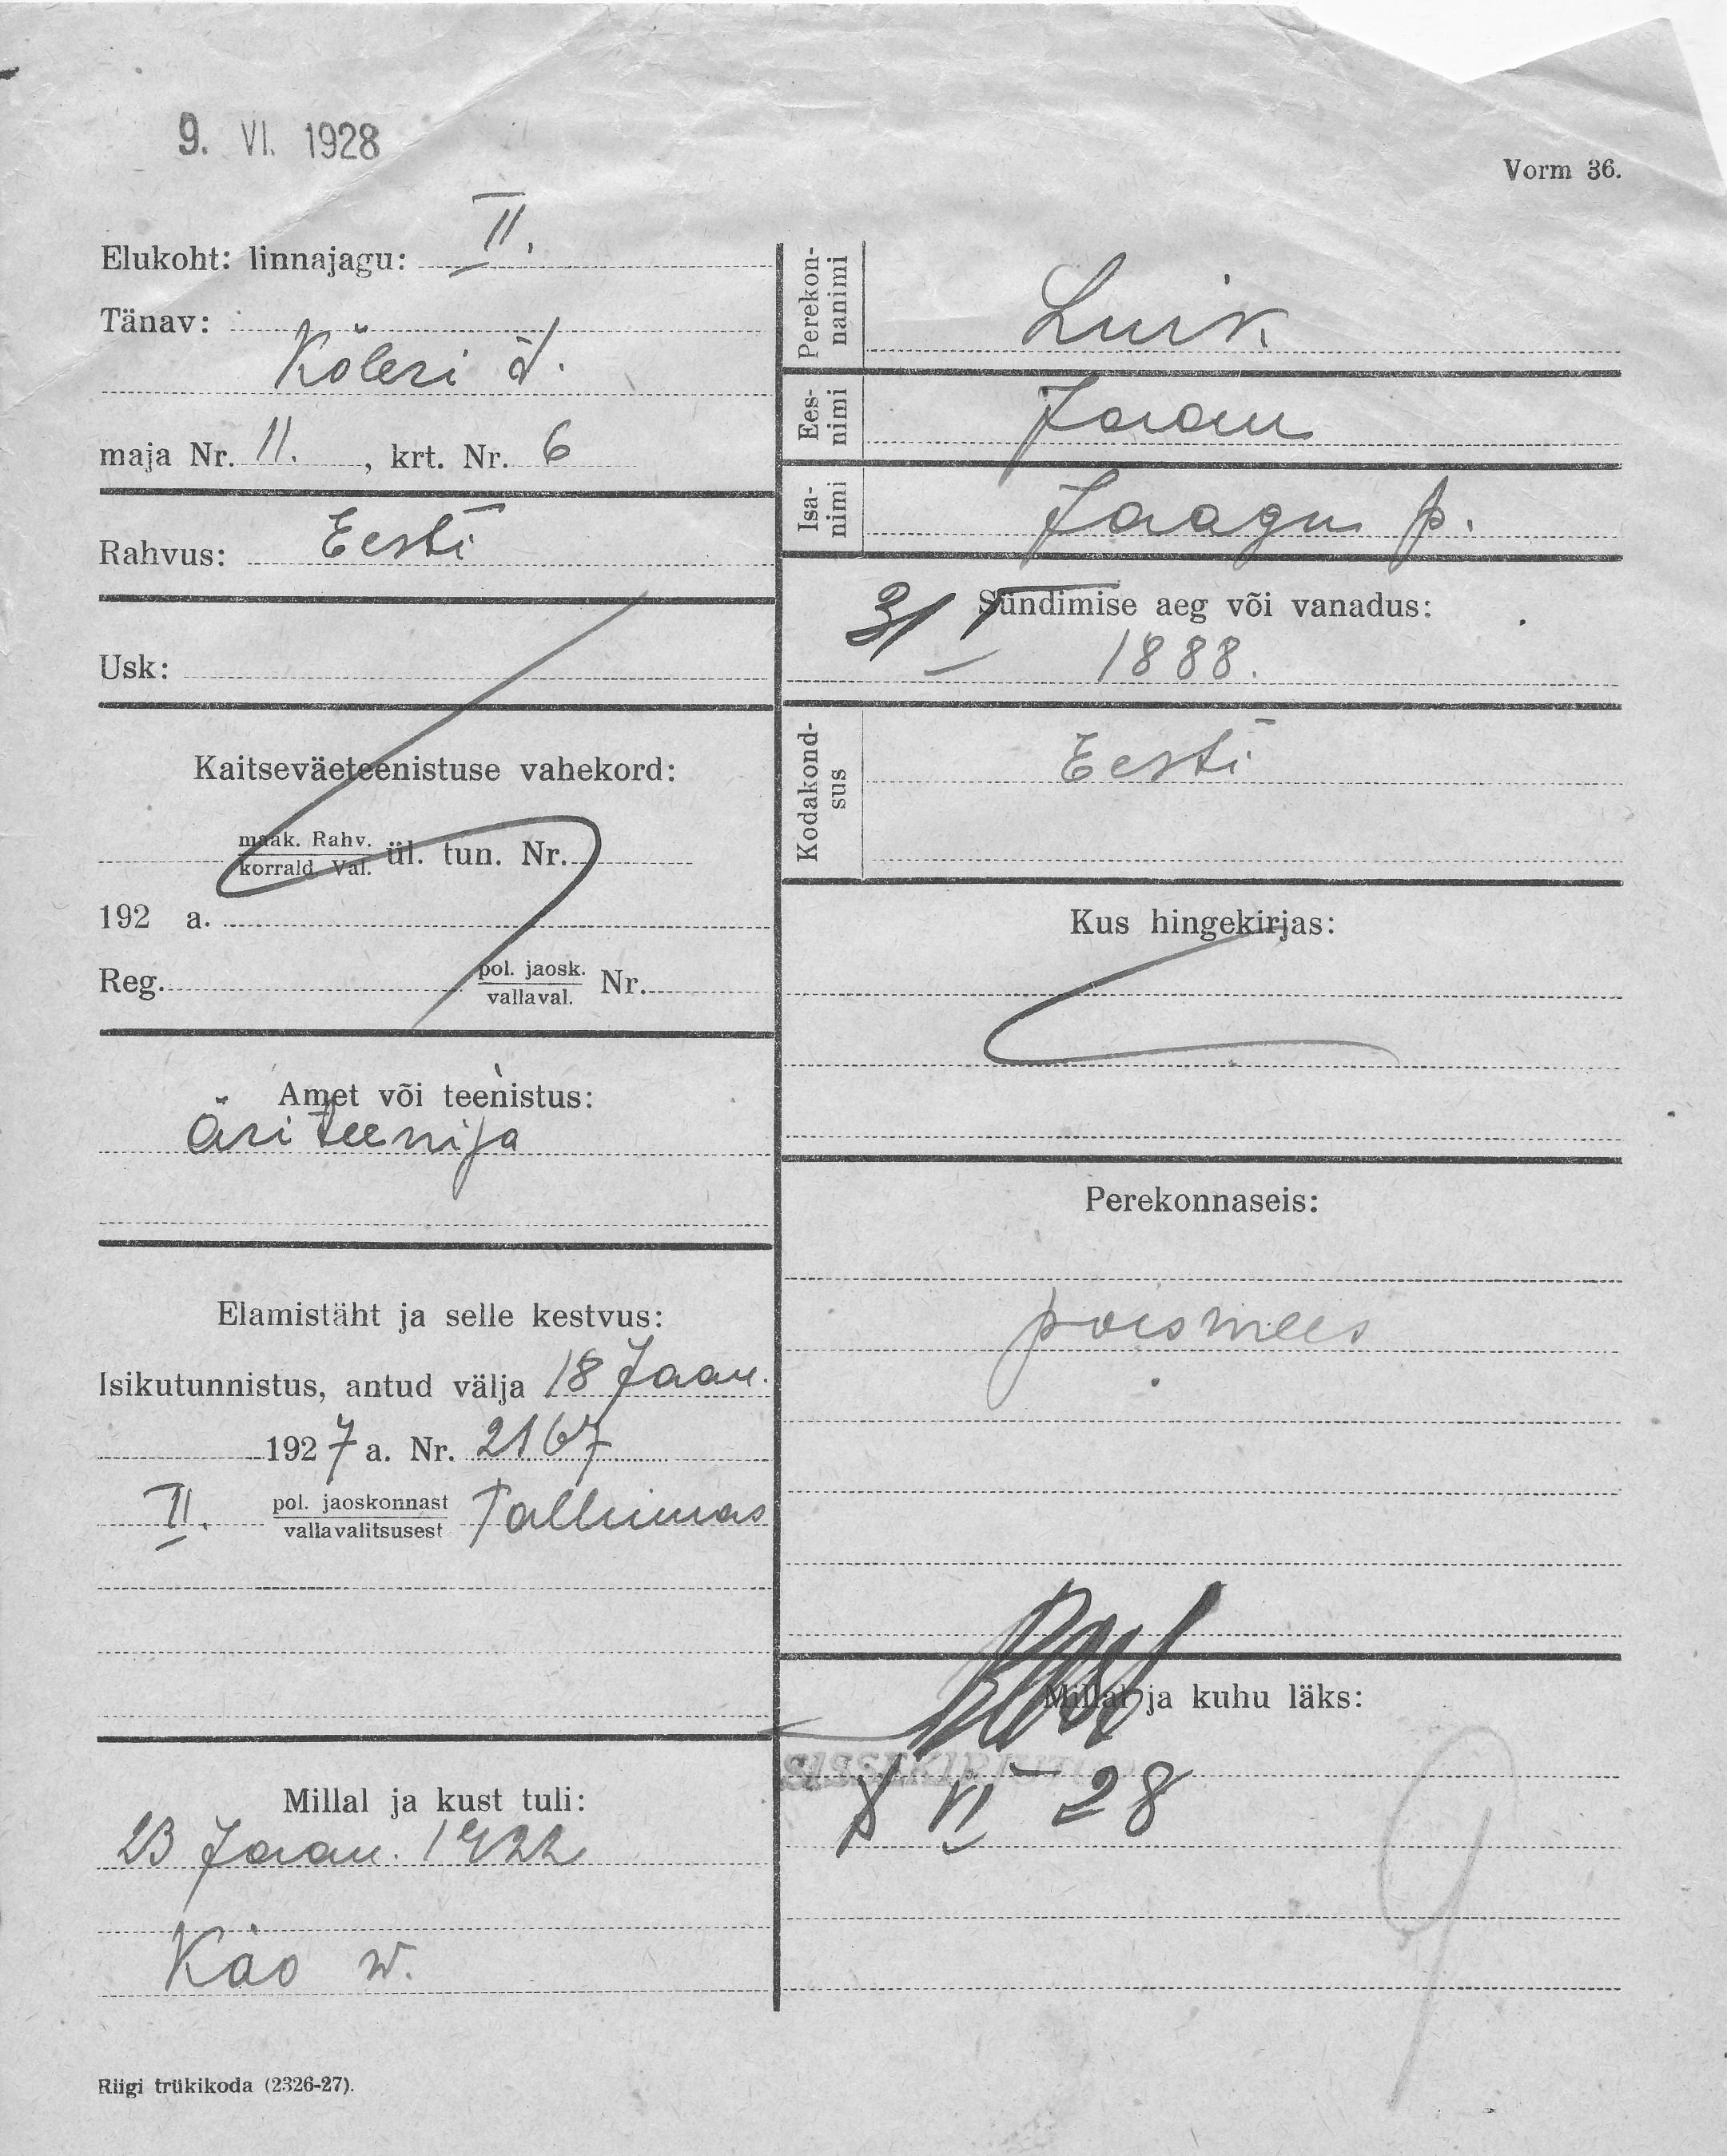 9. VI. 1928
Vorm 36.
Elukoht: linnajagu: II.
Tänav:
Köleri t.
maja Nr. 11. , krt. Nr. 6
Rahvus: Eesti
Usk:
Kaitseväeteenistuse vahekord:
maak. Rahv.
korrald. Val. ül. tun. Nr.
192 a.
Reg. pol. jaosk.
vallaval. Nr.
Amet või teenistus:
Äriteenija
Elamistäht ja selle kestvus:
Isikutunnistus, antud välja 18 Jaan.
1927 a. Nr. 2167
II. pol. jaoskonnast
vallavalitsusest Tallinnas
Millal ja kust tuli:
23 Jaan. 1922
Käo w.
Riigi trükikoda (2326-27).
Perekon-
nanimi
Luik
Ees-
nimi
Jaan
Isa-
nimi
Jaagu p.
Sündimise aeg või vanadus:
31 I 1888.
Kodakond-
sus
Eesti
Kus hingekirjas:
Perekonnaseis:
poismees
Millal ja kuhu läks:
VI 28